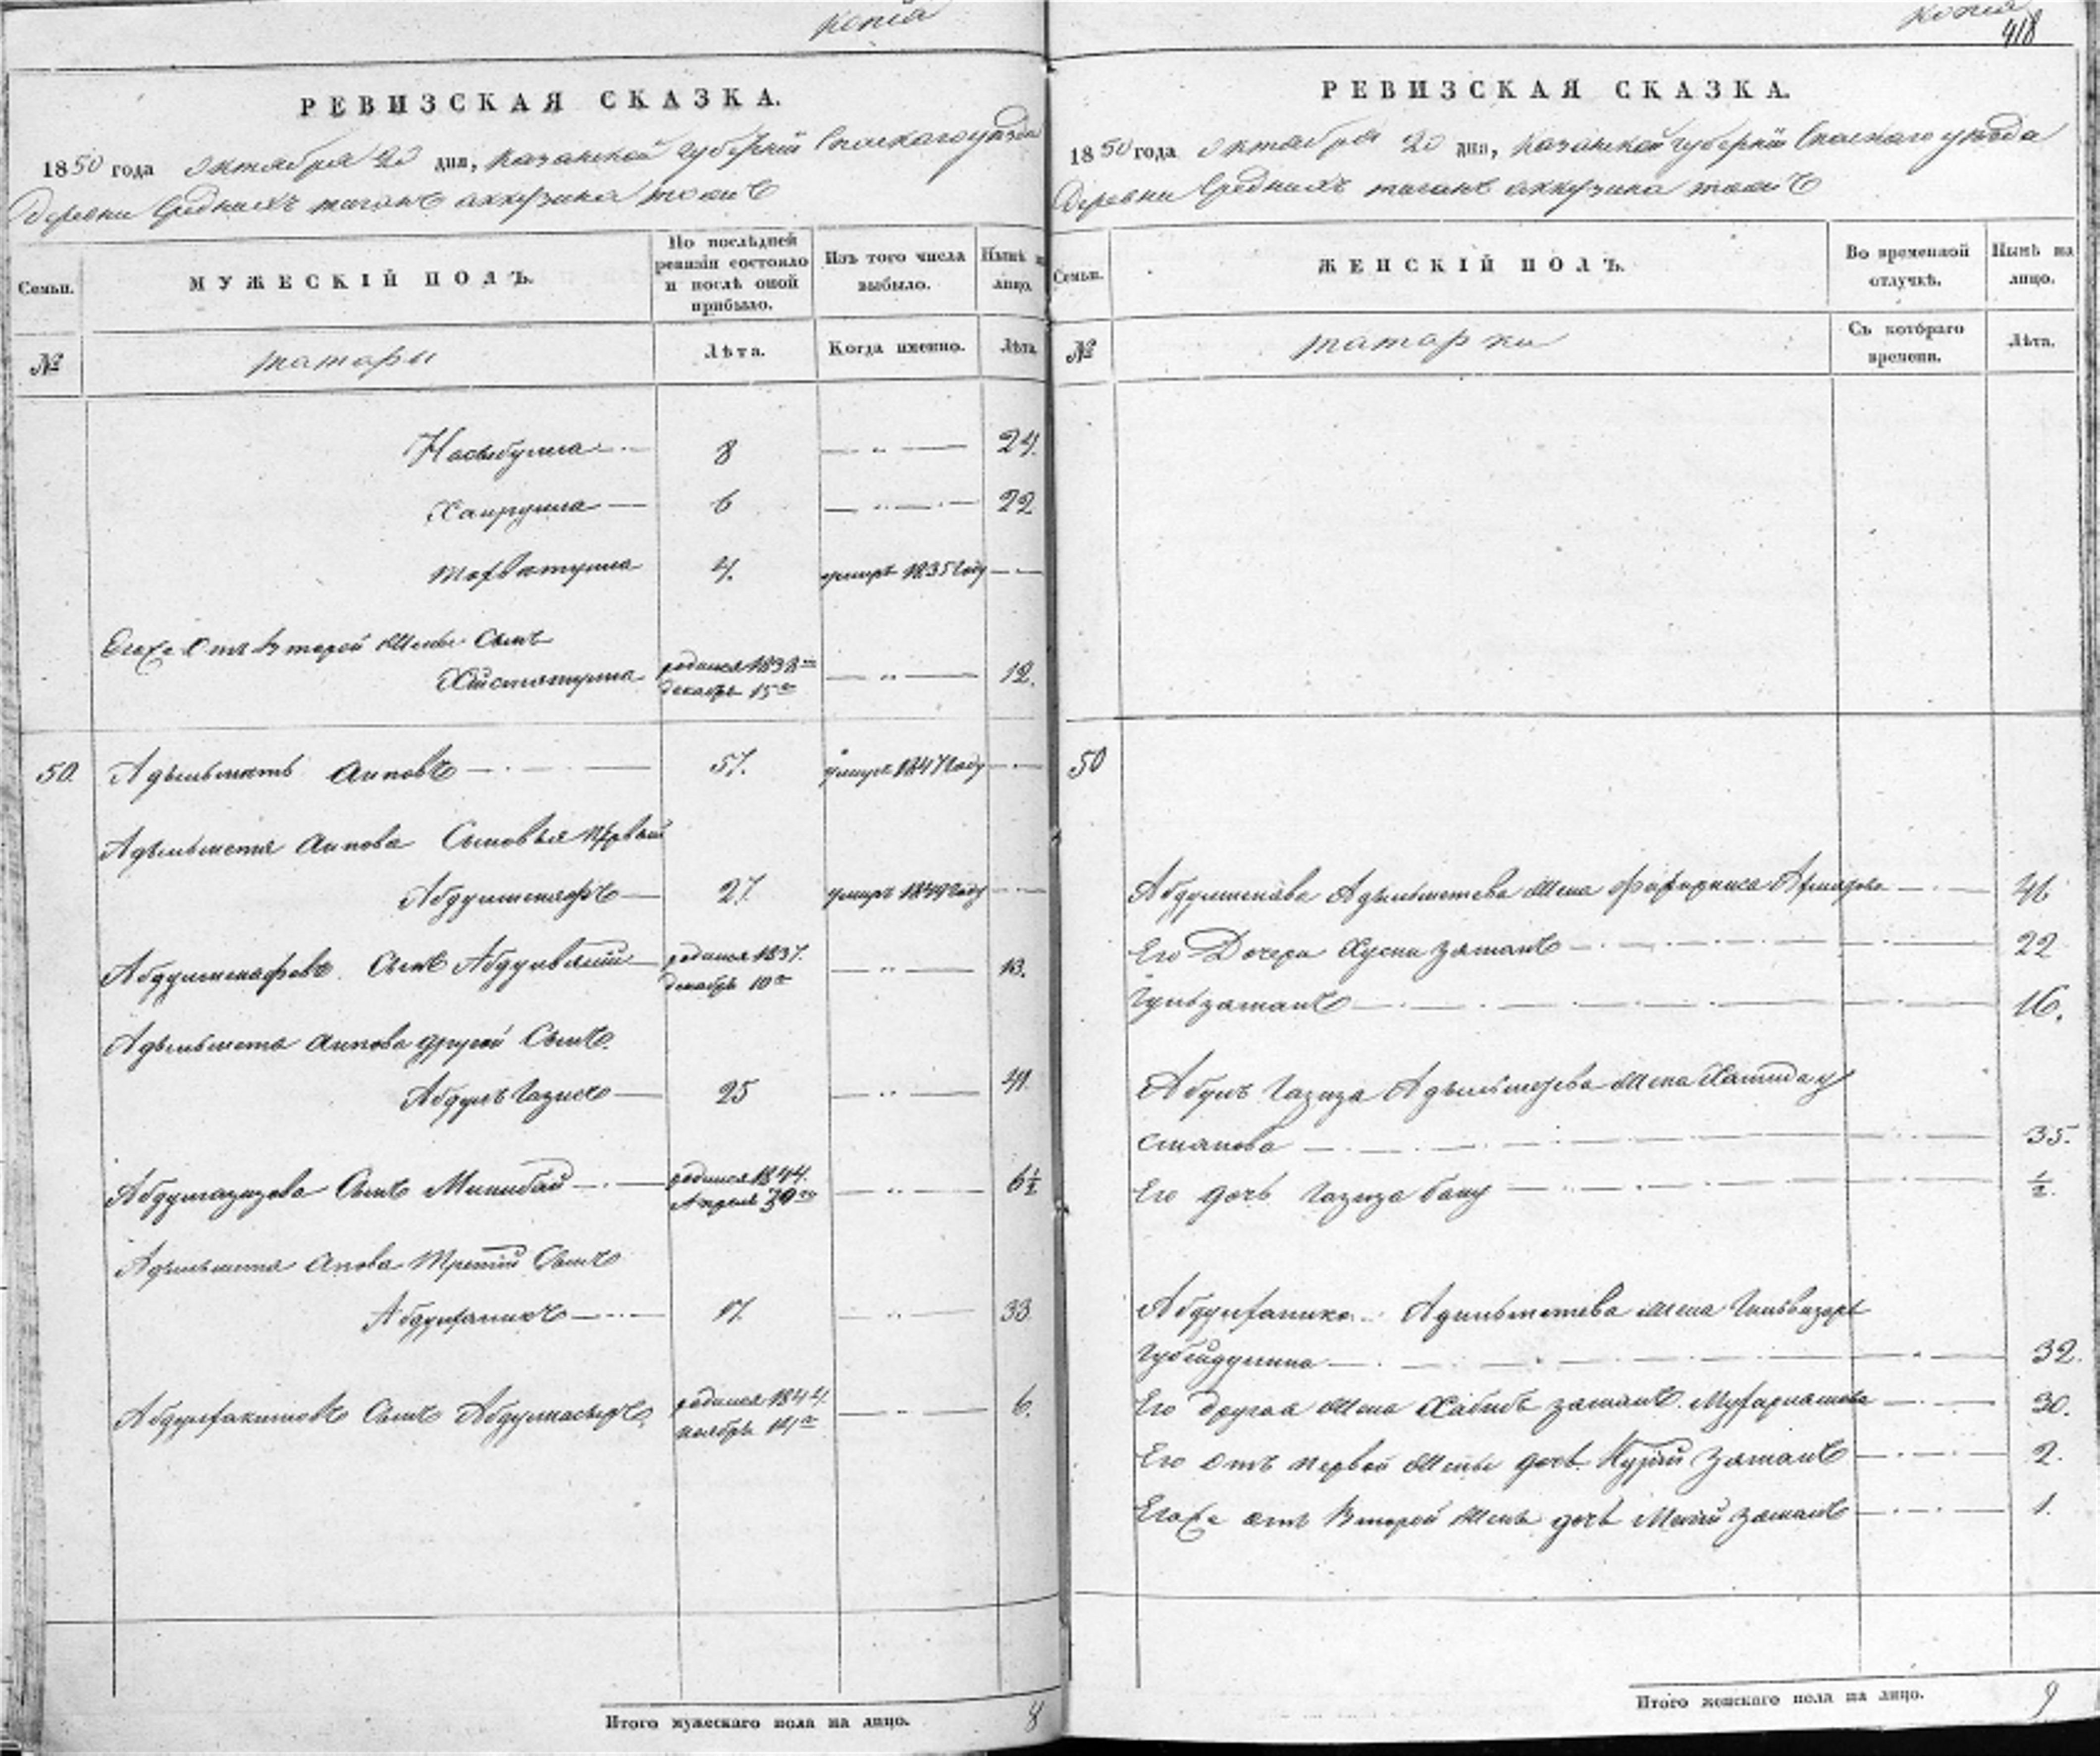 копія
РЕВИЗСКАЯ СКАЗКА.
1850 года октября 20 дня, Казанской губерніи Спаскаго уѣзда
Деревни Среднихъ тиганъ аккузина тожъ
Семьи.
МУЖЕСКІЙ ПОЛЪ.
По послѣдней ревизіи состояло и послѣ оной прибыло.
Изъ того числа выбыло.
Нынѣ на лицо.
№
татары
Лѣта.
Когда именно.
Лѣта.
Насыбулла 8 24.
Хаирулла 6 22
4. умиръ 1835 году
Егоже отъ второй жены Сынъ
родился 1838 го декабря 15 го 12.
50. Адельметь Аиповъ 57. умиръ 1847 году
Адельметя Аипова Сыновья первый
27 умиръ 1849 году
Сынъ родился 1837. декабря 10 го 13.
Адельметя Аипова другой Сынъ
Абдулъ Газизъ 25 41
Абдулгазизова Сынъ Минибай родился 1844. Апреля 30 го 6½
Адельметя Аипова третій Сынъ
17. 33
Сынъ родился 1844. ноября 14 го 6.
Итого мужескаго пола на лицо. 8
копія
418
РЕВИЗСКАЯ СКАЗКА.
1850 года октября 20 дня, Казанской губерніи Спаскаго уѣзда
Деревни Среднихъ тиганъ аккузина тожъ
Семьи.
ЖЕНСКІЙ ПОЛЪ.
Во временной отлучкѣ.
Нынѣ на лицо.
№
татарки
Съ котораго времени.
Лѣта.
50
Адельметева жена 41.
Его Дочери Хусни Заманъ 22
Гульзаманъ 16.
Абулъ Газиза Адельметева жена Хатида у
стяпова 35.
Его дочь Газиза бану ½.
Адельметева жена
Губейдулина 32.
Его другая жена Хабибъ заманъ 30.
Его отъ первой жены дочь Нурій Заманъ 2.
Егоже отъ второй жены дочь заманъ 1.
Итого женскаго пола на лицо. 9